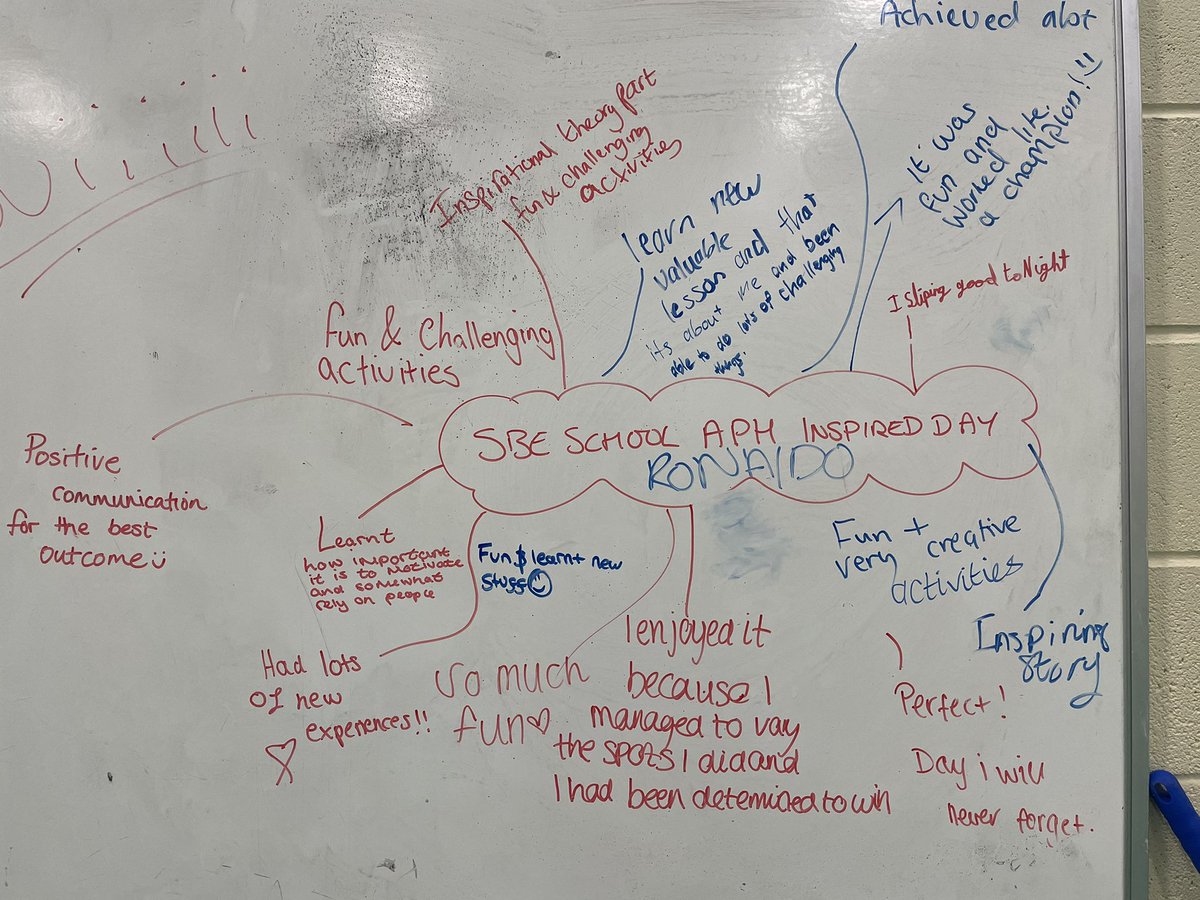 Achieved alot
Inspirational theory part
fun & challenging
activities
learn new
valuable
lesson and that
its about me and been
able to do lots of challenging
things.
It was
fun and
worked like
a champion!!
I sliping good toNight
fun & Challenging
activities
SBE SCHOOL APH INSPIRED DAY
RONAlDO
Positive
communication
for the best
outcome
Learnt
how important
it is to motivate
and somewhat
rely on people
Fun & learnt new
stuff
Fun +
very creative
activities
Inspiring
story
Had lots
Of new
experiences!!
so much
fun
I enjoyed it
because I
managed to vay
the SPOTS I did and
I had been detemined to win
Perfect!
Day i will
never forget.